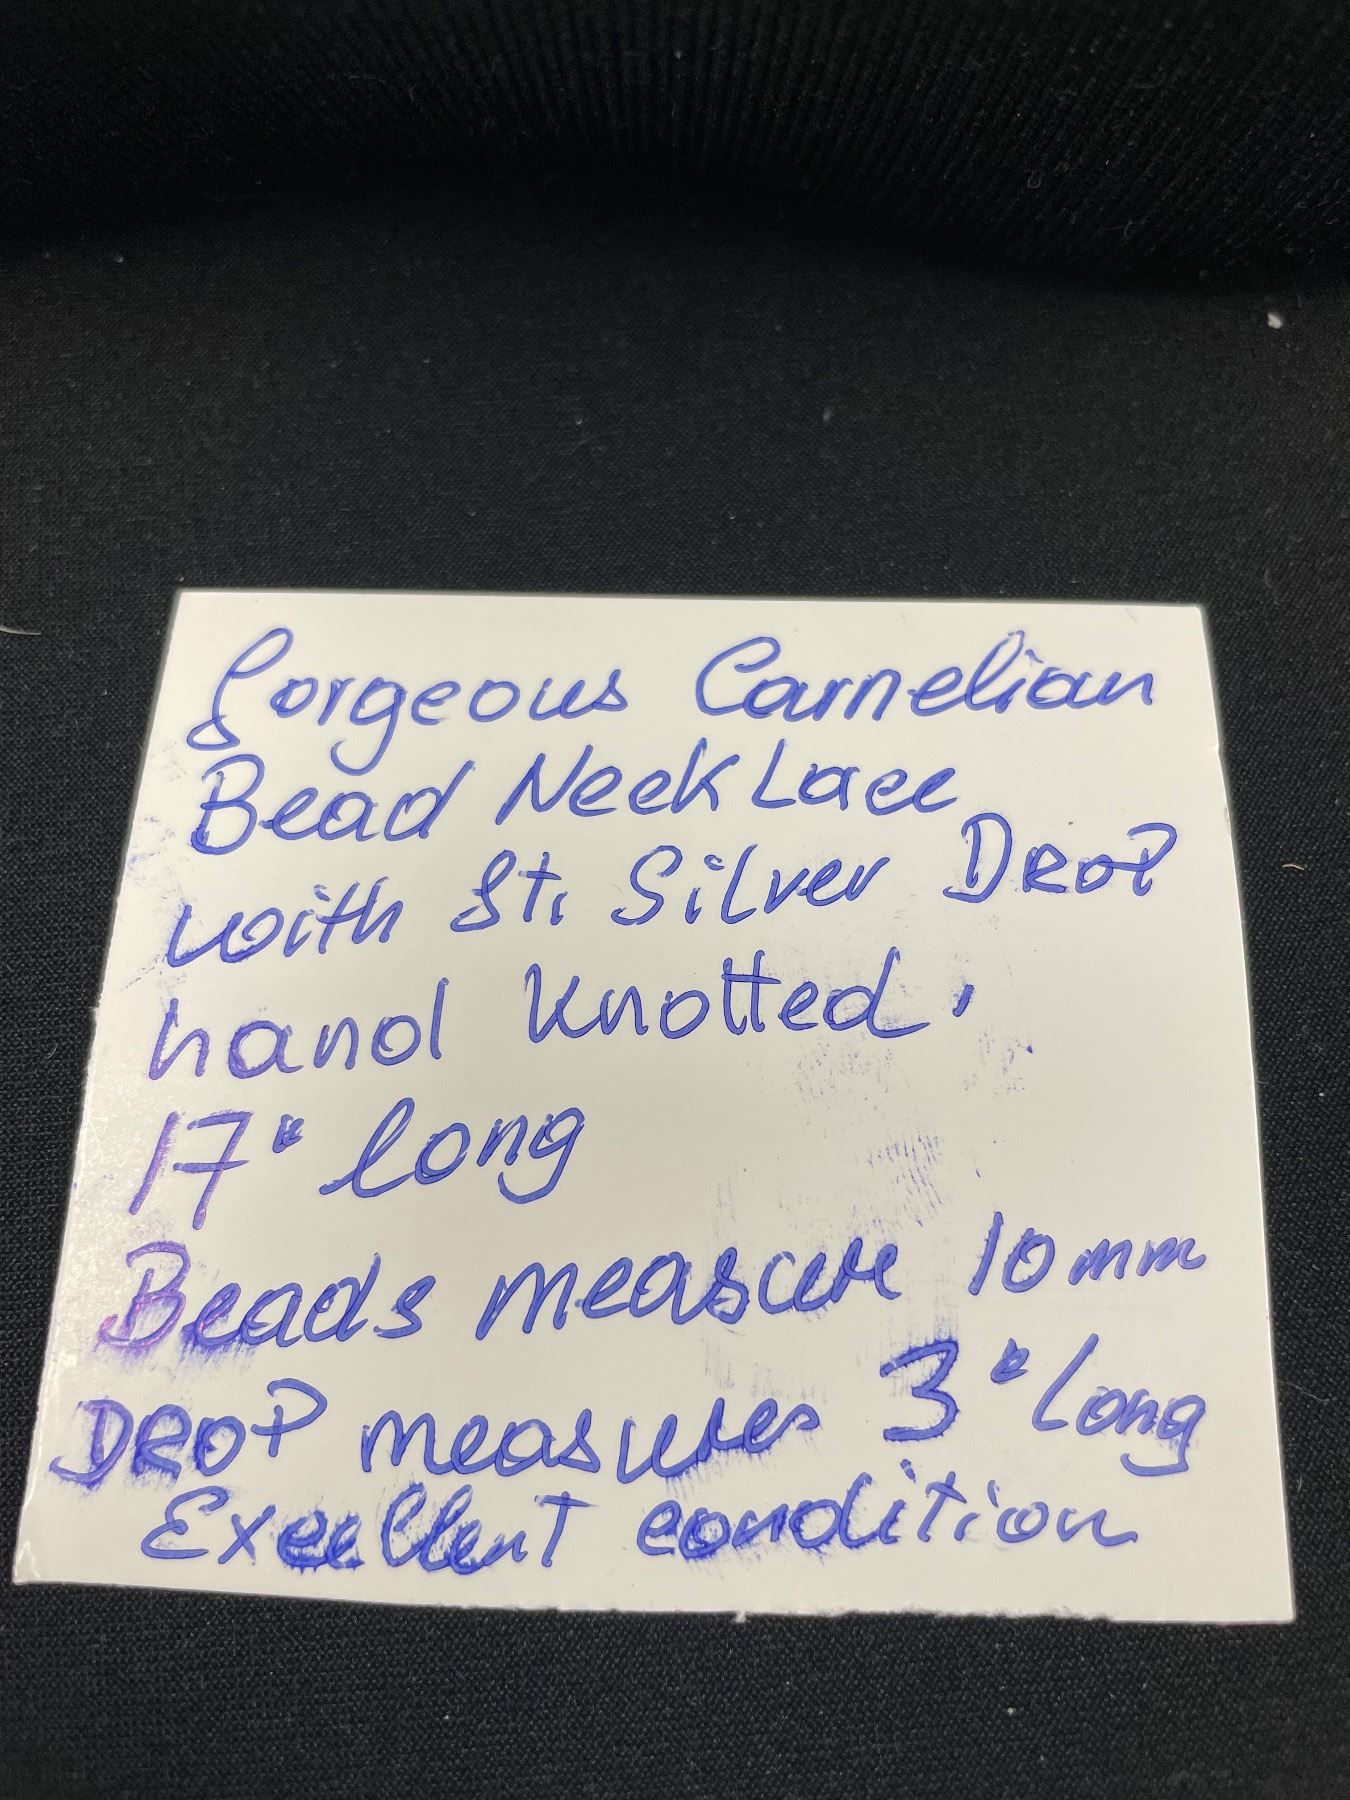 Gorgeous Carnelian
Bead NeckLace
with St. Silver DROP
hand knotted,
17" long
Beads measure 10mm
DROP measures 3" Long
Excellent condition